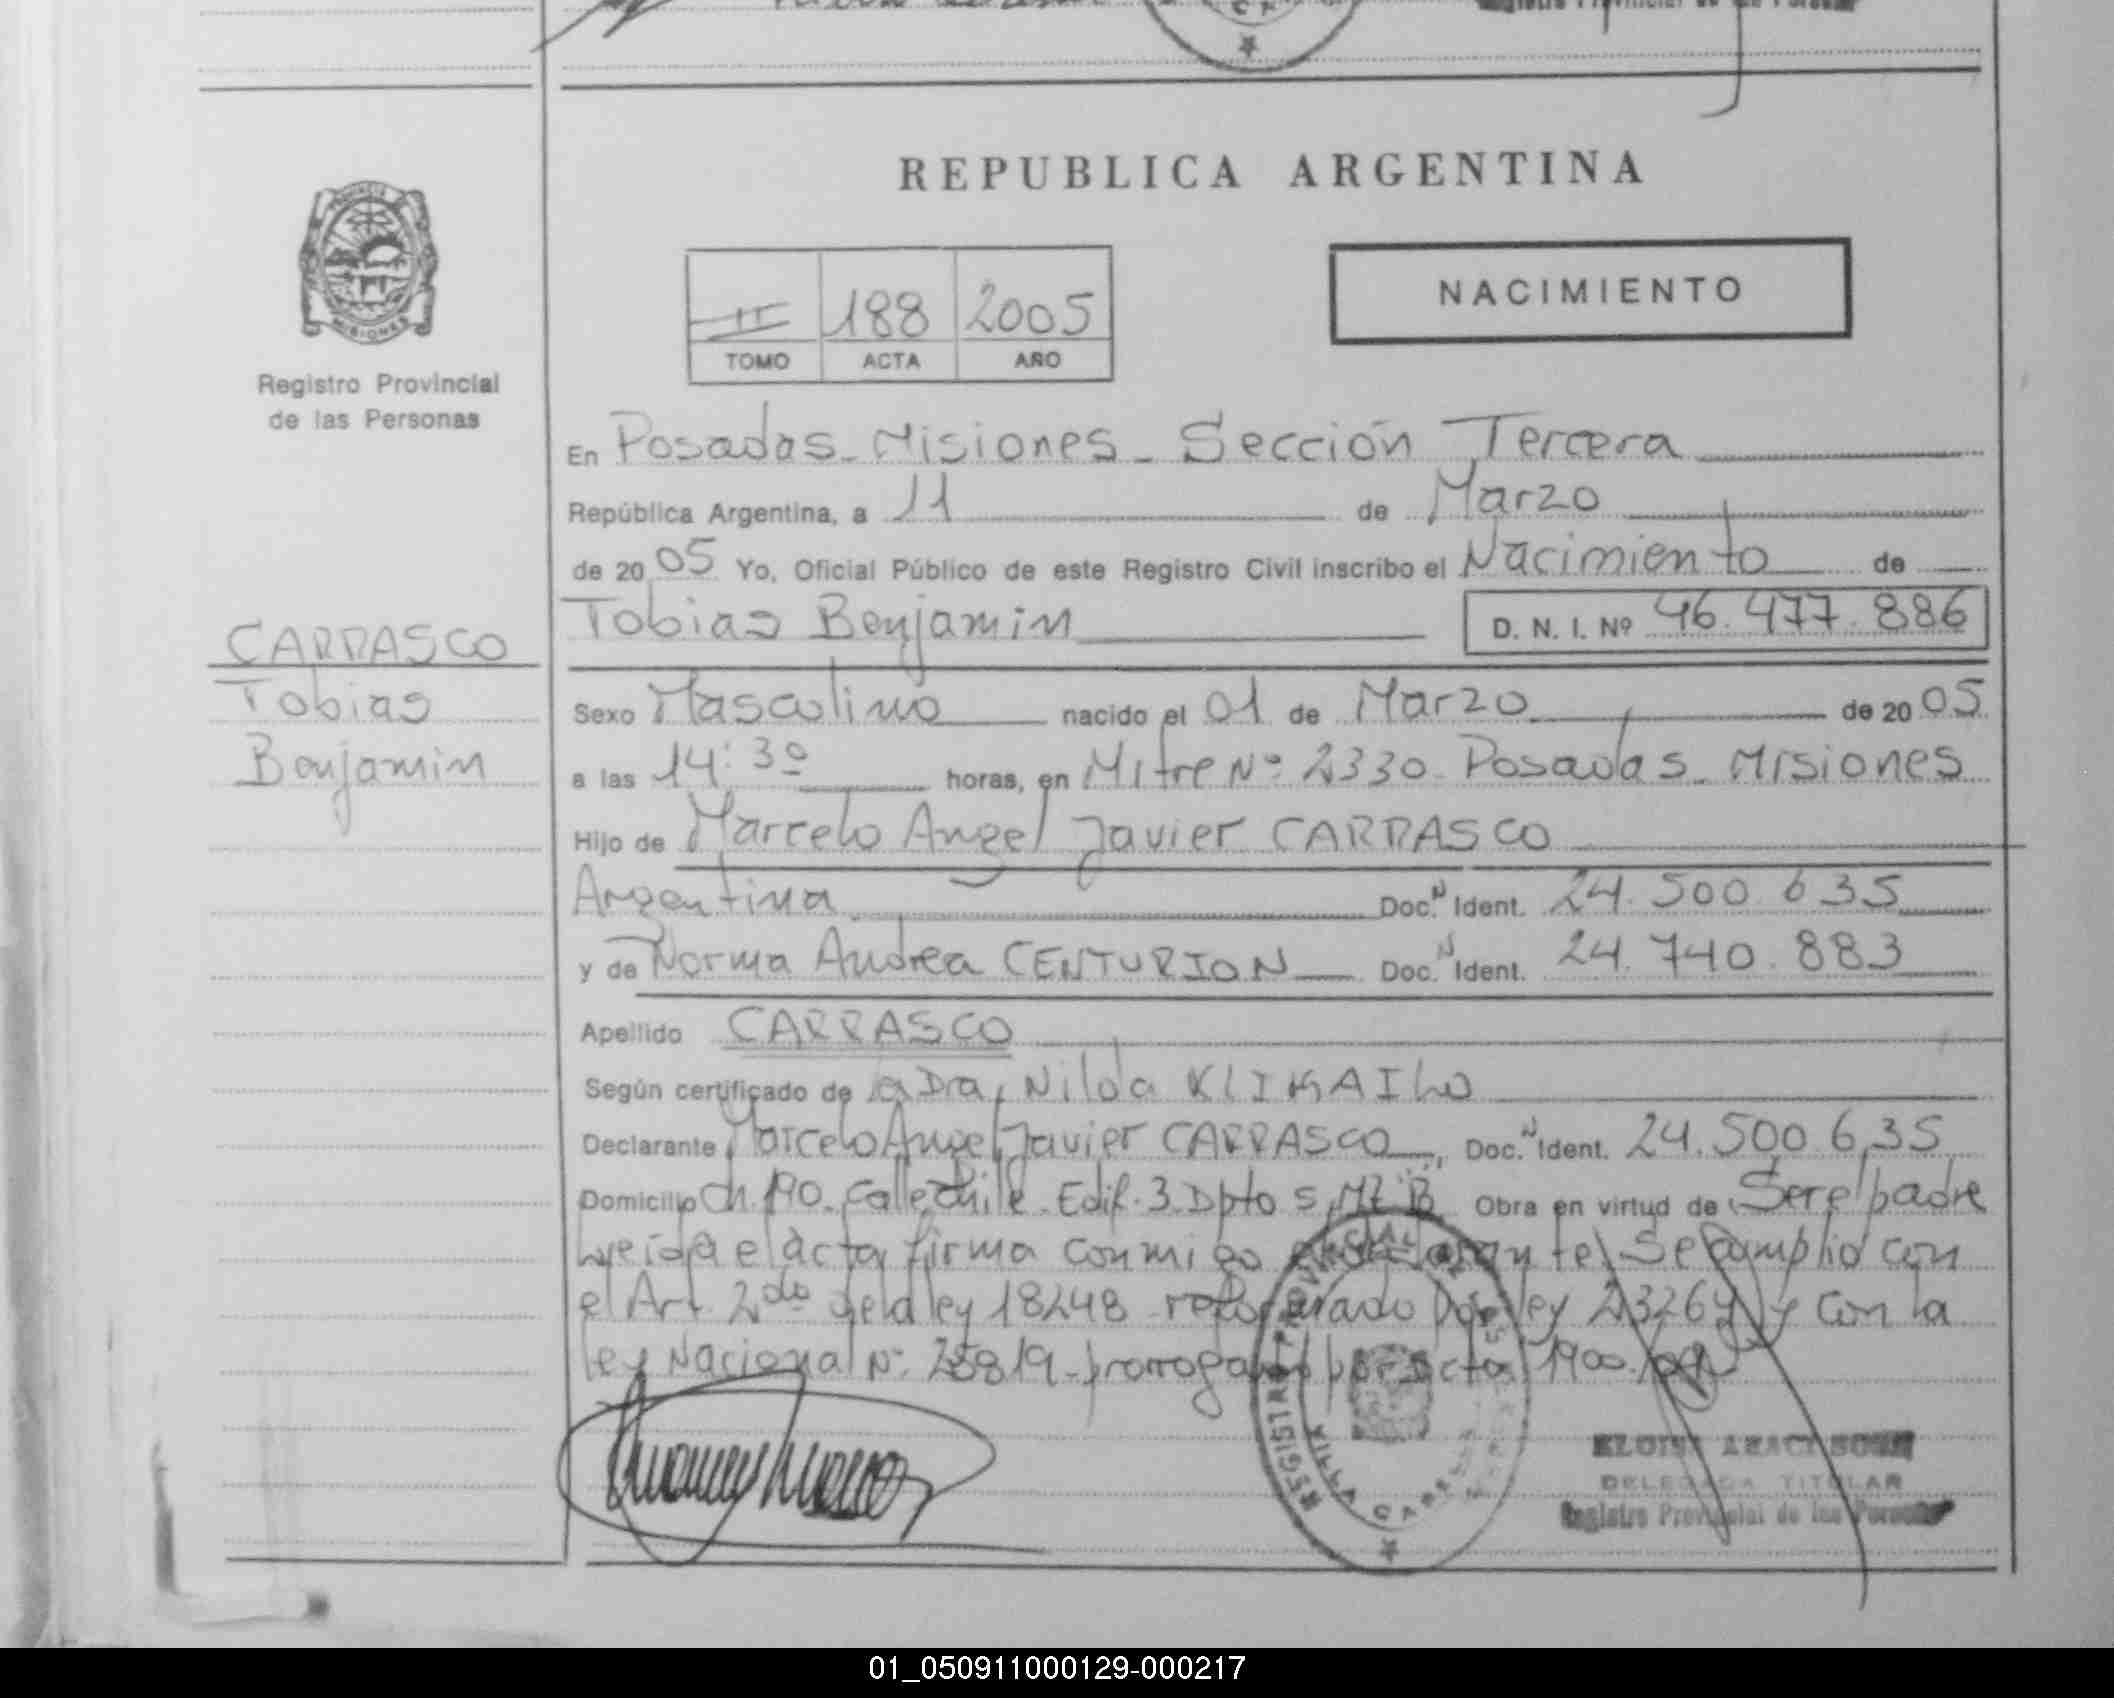 REPUBLICA ARGENTINA
PROVINCIA
MISIONES
Registro Provincial
de las Personas
II 188 2005
TOMO ACTA AÑO
NACIMIENTO
En Posadas - Misiones - Sección Tercera
República Argentina, a 11 de Marzo
de 2005 Yo, Oficial Público de este Registro Civil inscribo el Nacimiento de
Tobias Benjamin D. N. I. Nº 46.477.886
CARRASCO
Tobias
Benjamin
Sexo Masculino nacido el 01 de Marzo de 2005
a las 14:30 horas, en Mitre Nº 2330 Posadas - Misiones
Hijo de Marcelo Angel Javier CARRASCO
Argentina Doc. N Ident. 24.500.635
y de Norma Andrea CENTURION Doc. N Ident. 24.740.883
Apellido CARRASCO
Según certificado de la Dra, Nilda
Declarante Marcelo Angel Javier CARRASCO, Doc. N Ident. 24.500.635
Domicilio Ch. 190. Calle Chile. Edif. 3. Dpto 5 Mz B Obra en virtud de Ser el padre
Leida el acta firma conmigo el declarante Se cumplio con
el Art. 2do de la ley 18248 por ley y con la
ley Nacional Nº 25819 - por
REGISTRO PROVINCIAL DE LAS
VILLA
DELEGADA TITULAR
Registro Provincial de las Personas
01_050911000129-000217